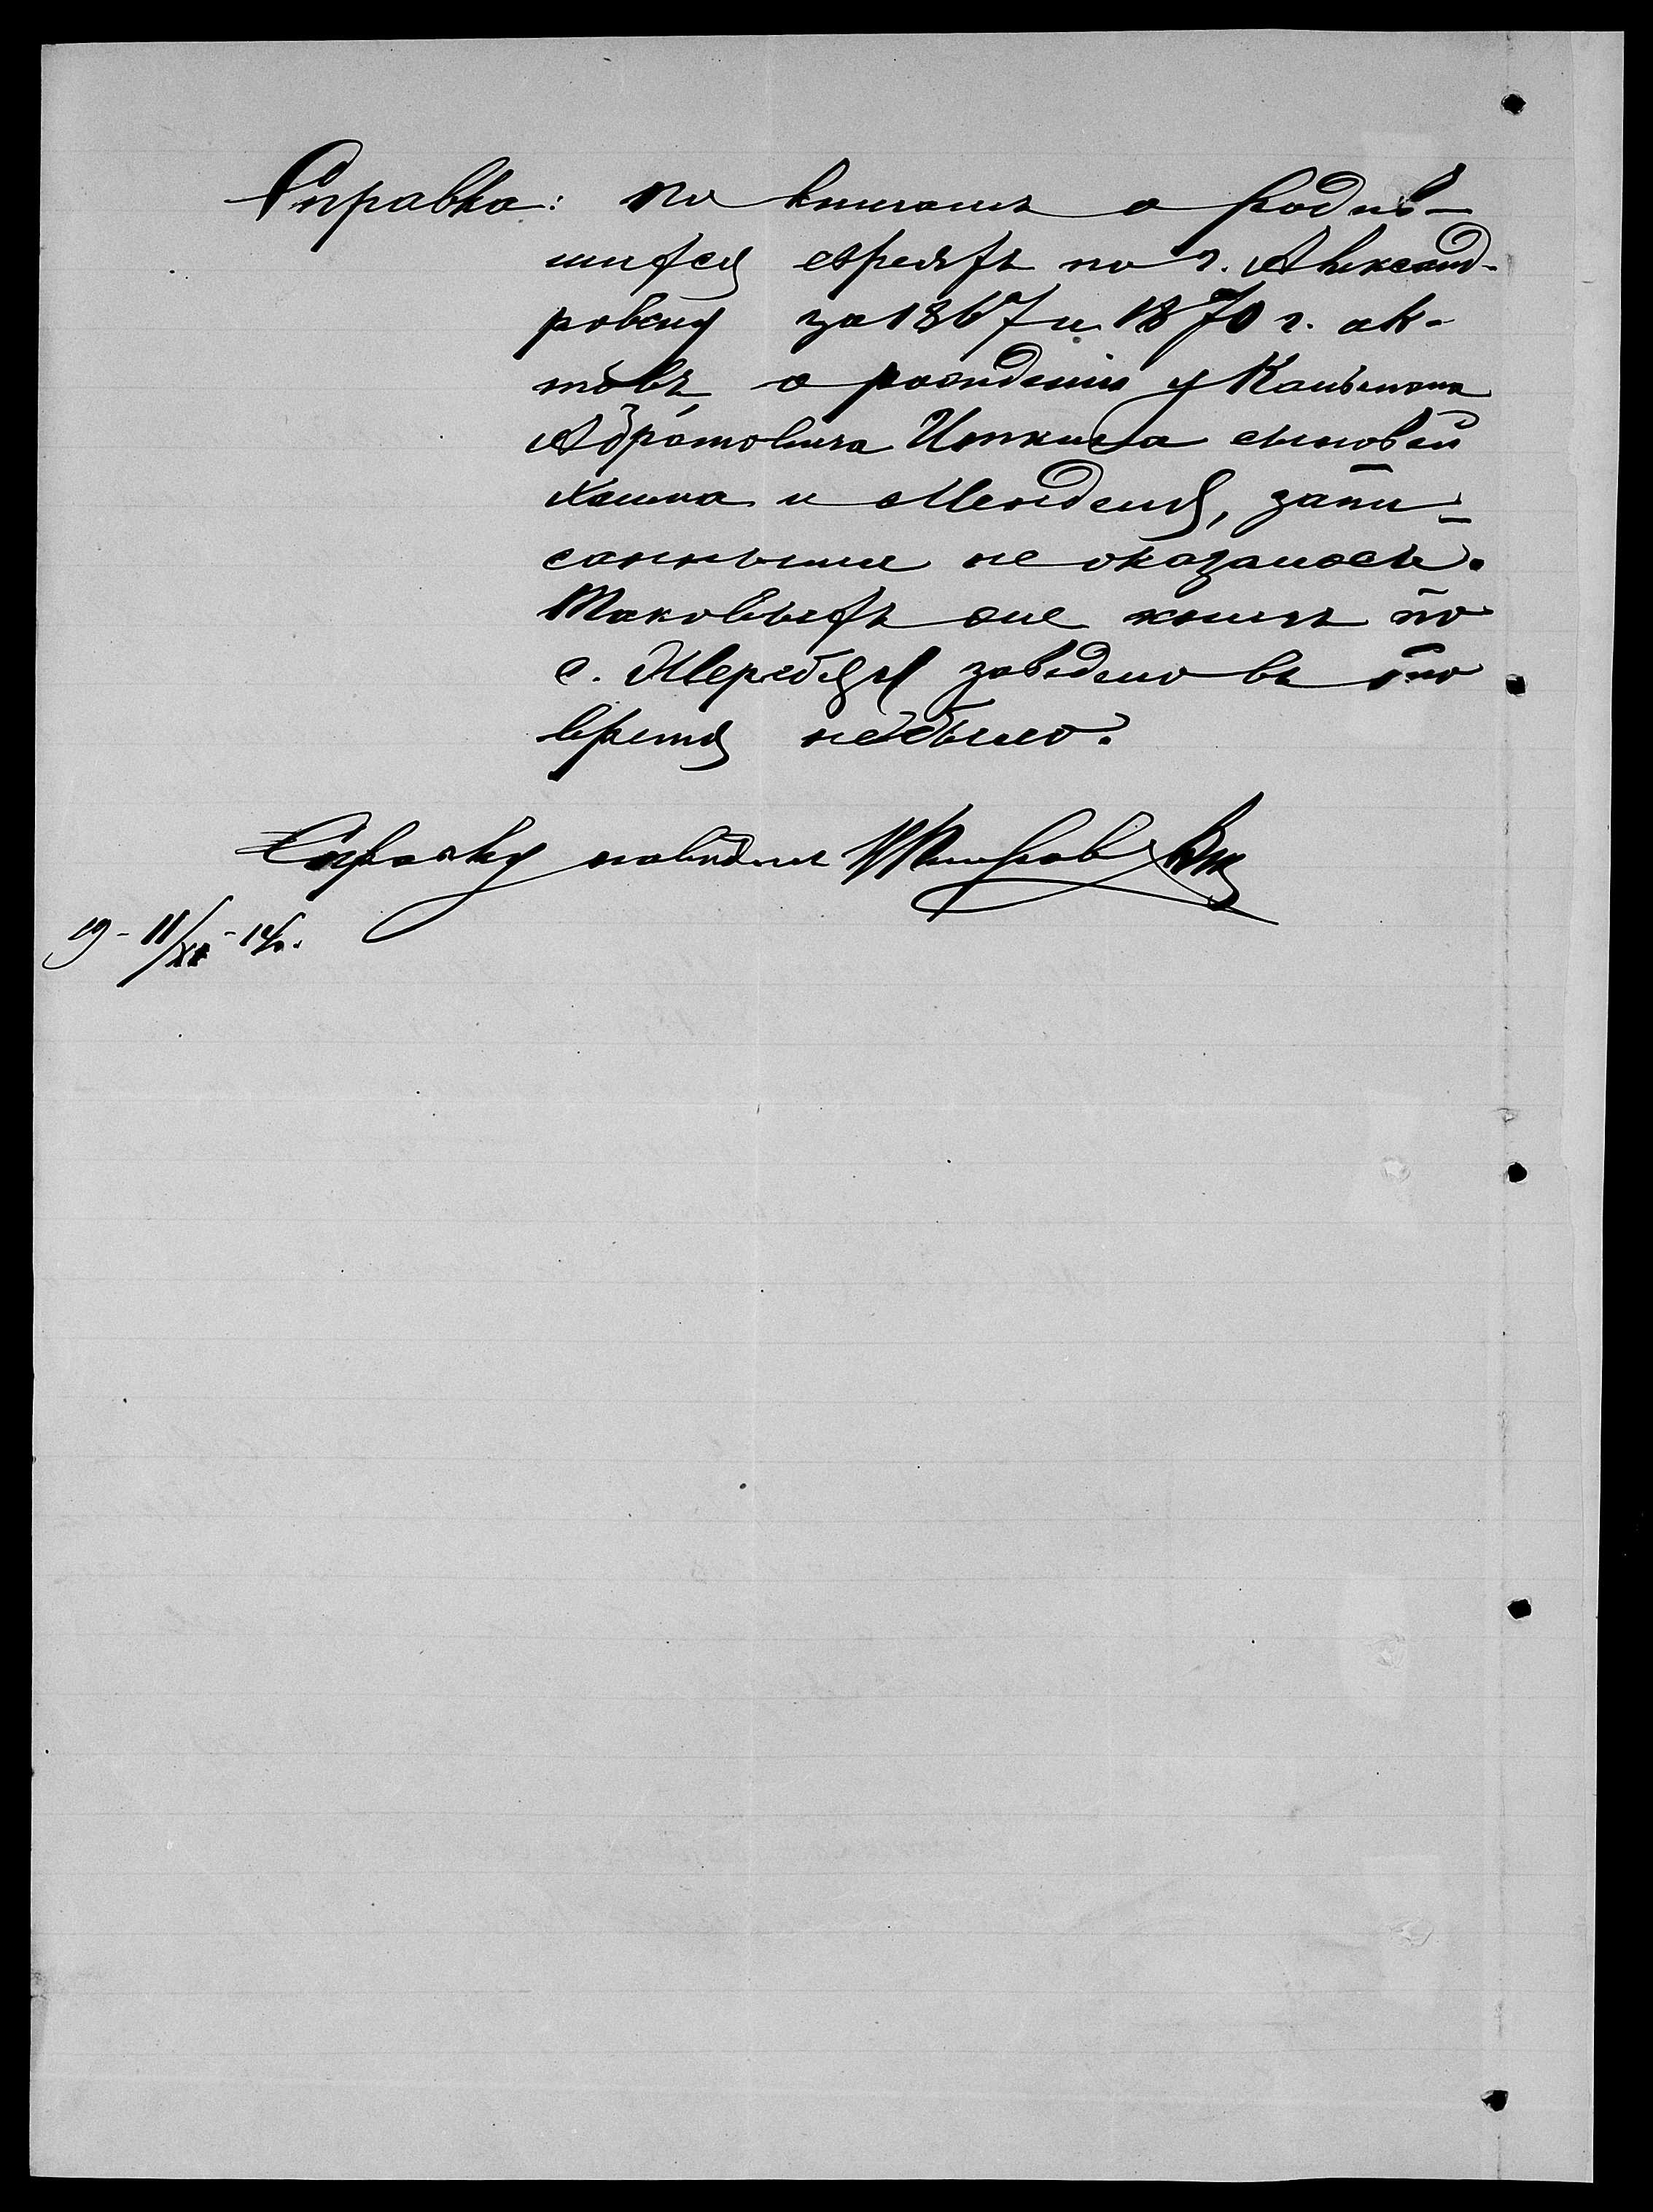 Справка: по книгамъ о родив-
шихся евреяхъ по г. Александ-
ровску за 1867 и 1870 г. ак-
товъ о рожденіи у Кальмана
Абрамовича Иткина сыновей
Хаима и Менделя, запи-
санными не оказалось.
Таковыхъ же книгъ по
с. Жеребцу заведено въ то
время не было.
Справку наводилъ
19-11/XII-14г.